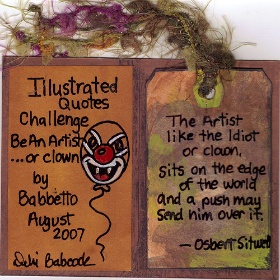 Illustrated
Quotes
Challenge
Be An Artist
...or clown
by
Babbetto
August
2007
Babcock
The Artist
like the Idiot
or clown,
sits on the edge
of the world
and a push may
send him over it.
— Osbert Sitwell